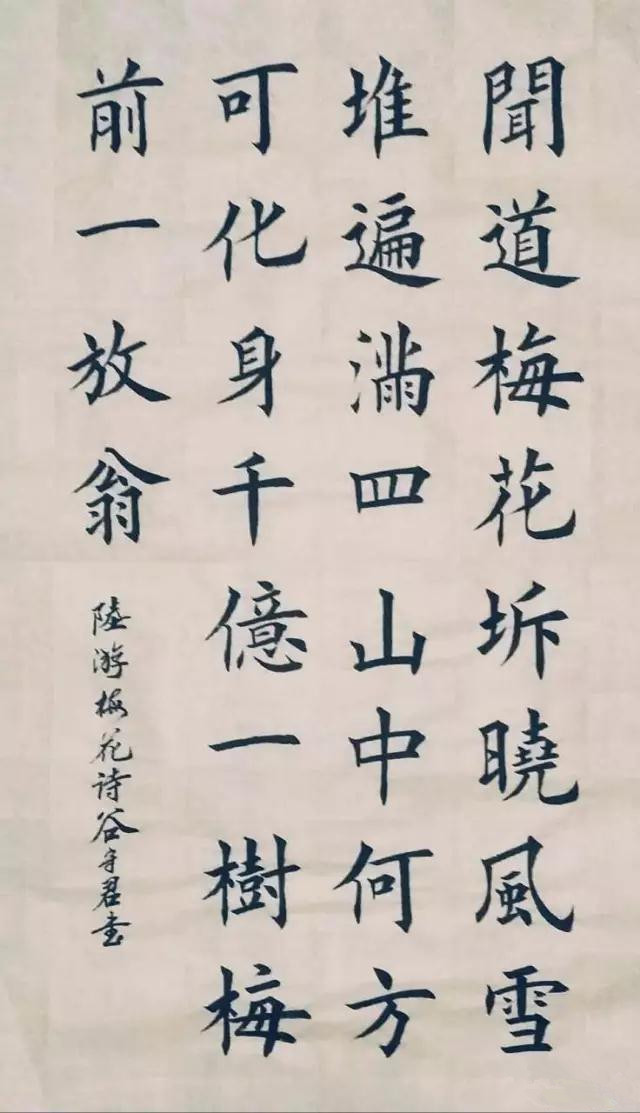 聞道梅花坼曉風雪
堆遍滿四山中何方
可化身千億一樹梅
前一放翁
陸游梅花诗谷守君书